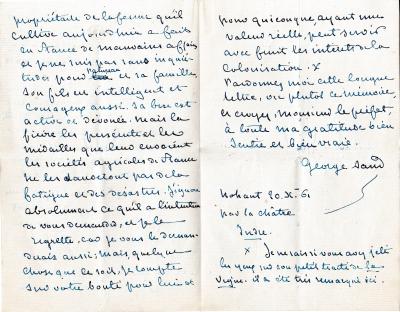 propriétaire de la ferme qu'il
cultive aujourd'hui a fait
en France de mauvaises affaires
et je ne suis pas sans inquié-
tudes pour l'avenir et sa famille
Son fils est intelligent et
courageux aussi. Sa bru est
active et dévouée. Mais la
fièvre les persécute et les
médailles que leur envoient
les sociétés agricoles de France
ne les dédommagent pas de la
fatigue et des désastres. J'ignore
absolument ce qu'il a l'intention
de vous demander, et je le
regrette, car je vous le deman-
derais aussi; mais, quelque
chose que ce soit, je compte
sur votre bonté pour lui et
pour quiconque ayant une
valeur réelle, peut servir
avec fruit les intérêts de la
colonisation. x
Pardonnez moi cette longue
lettre, ou plutot ce mémoire,
et croyez, Monsieur le préfet,
à toute ma gratitude bien
sentie et bien vraie.
George Sand
Nohant 20. X. 61
par la châtre
Indre.
x Je ne sais si vous avez jeté
les yeux sur son petit traité de la
vigne. il a été très remarqué ici.